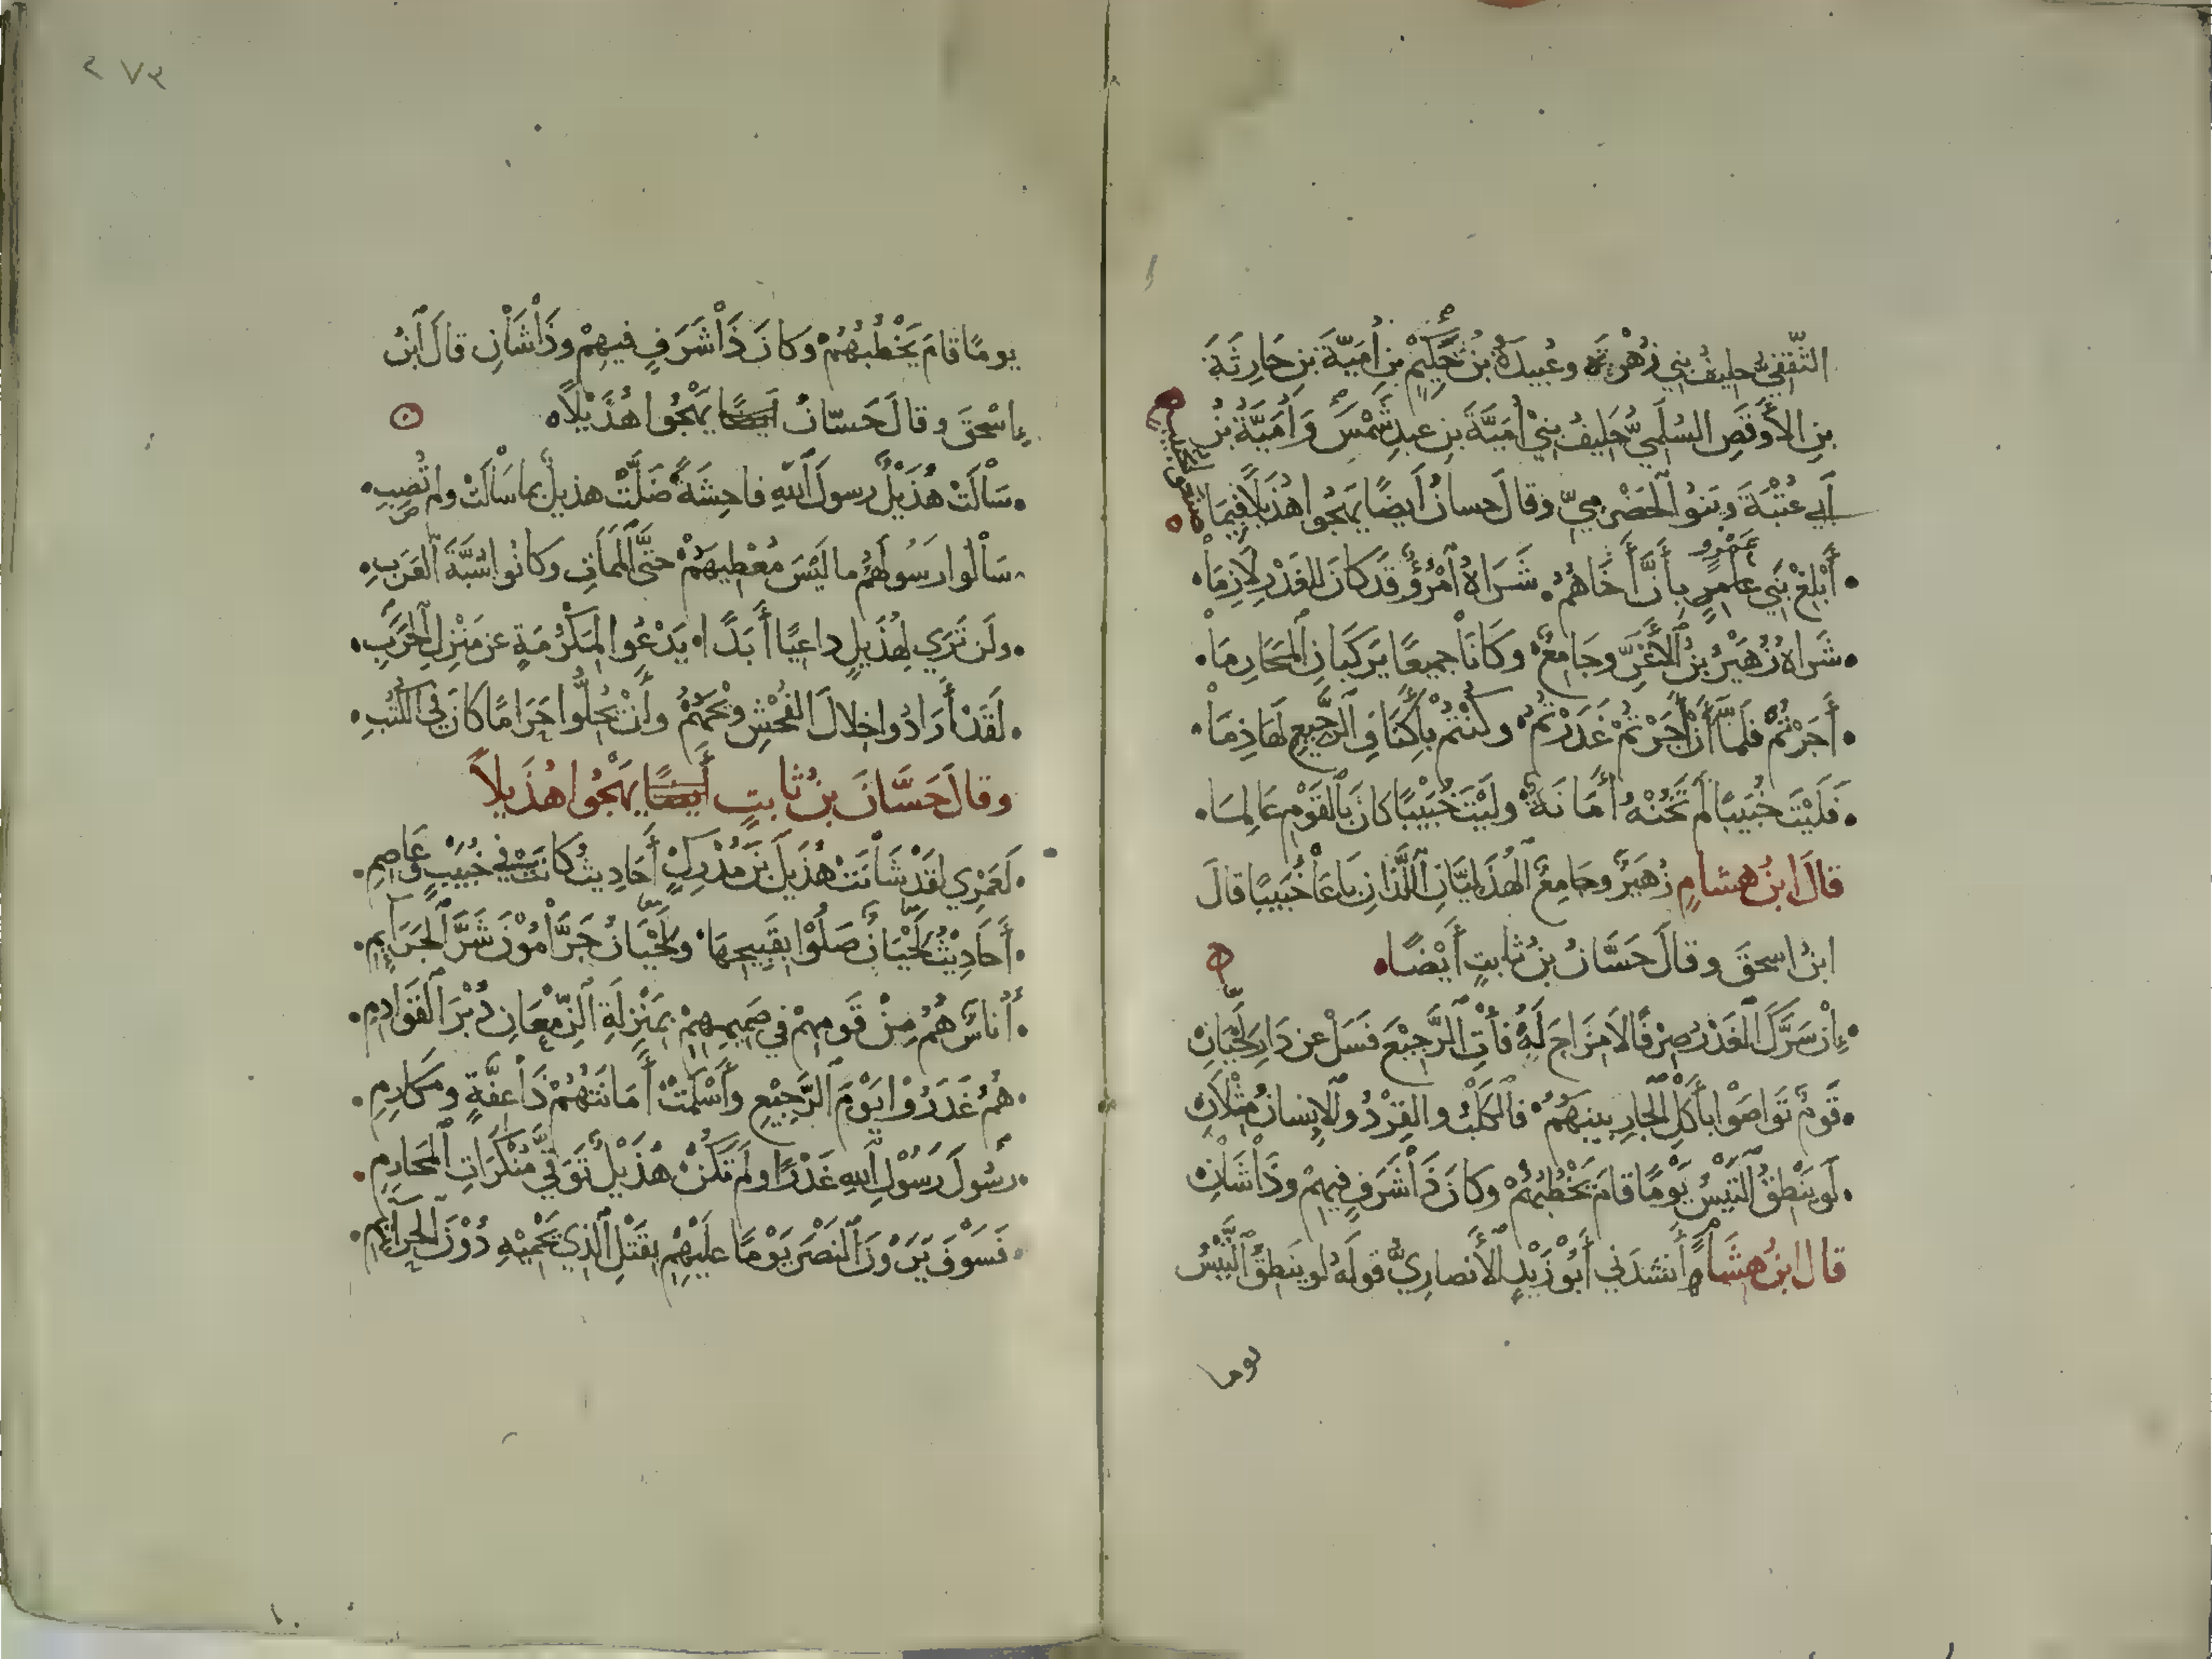 الثَّقَفِيُّ حليفُ بني زُهْرَةَ وعُبيدةُ بنُ حَكِيمِ بنِ أُمَيَّةَ بنِ حَارِثَةَ
بنِ الأَوْقَصِ السُلَمِيُّ حَلِيفُ بَنِي أُمَيَّةَ بنِ عبدِ شَمْسٍ وَأُمَيَّةُ بنُ
أَبي عُتْبَةَ وبَنُو الْحَضْرَمِيِّ وقالَ حسانُ أَيضًا يَهْجُوا هُذَيلًا فِيمَا
عَمْرٍو
• أَبْلِغْ بَنِي عامِرٍ بِأَنَّ أَخَاهُمُ • شَرَاهُ ٱمْرُؤٌ قَدْ كَانَ لِلْغَدْرِ لَازِمَا •
• شَرَاهُ زُهَيْرُ بنُ الْأَغَرِّ وجَامِعٌ • وَكَانَا جميعًا يَرْكَبَانِ الْمَحَارِمَا •
• أَجَرْتُمْ فَلَمَّا أَنْ أَجَرْتُمْ غَدَرْتُمُ • وكُنْتُمْ بِأَكْنَافِ الرَّجِيعِ لَهَاذِمَا •
• فَلَيْتَ خُبَيبًا لَمْ تَخُنْهُ أَمَانَةٌ • ولَيْتَ خُبَيْبًا كانَ بِالْقَوْمِ عَالِمَا •
قالَ ابنُ هشامٍ زُهَيرٌ وجامِعٌ الْهُذَلِيَّانِ اللَّذَانِ بَاعَا خُبَيبًا قالَ
ابنُ اسحقَ وقالَ حَسَّانُ بنُ ثابتٍ أَيْضًا •
• إِنْ سَرَّكَ الْغَدْرُ صِرْفًا لَا مِزَاجَ لَهُ فَأْتِ الرَّجِيْعَ فَسَلْ عن دَارِ لَحْيَانِ
• قَومٌ تَوَاصَوْا بِأَكْلِ الْجَارِ بينَهُمُ • فَالْكَلْبُ والقِرْدُ والْإِنسانُ مِثْلَانِ
• لَو يَنْطِقُ التَّيْسُ يَوْمًا قامَ يَخْطُبُهُمْ وكَانَ ذَا شَرَفٍ فيهِمْ وذَا شَانِ
قال ابنُ هِشَامٍ أَنشدَني أَبُو زَيْدٍ الْأَنصارِيُّ قَولَهُ لو يَنطِقُ التَّيْسُ
يوما
٢٧٣
يومًا قامَ يَخْطُبُهُمُ وَكانَ ذَا شَرَفٍ فيهِمْ وذَا شَانِ قالَ ابْنُ
إِسْحقَ وقالَ حَسّانُ أَيضًا يَهْجُوا هُذَيْلًا •
• سَالَتْ هُذَيْلٌ رسولَ اللّهِ فاحِشَةً ضَلَّتْ هذيلٌ بِما سَالَتْ ولم تُصِبِ •
• سَالُوا رَسُولَهُمُ ما لَيْسَ مُعْطِيَهُمْ حتَّى الْمَمَاتِ وكانُوا سُبَّةَ الْعَرَبِ •
• ولَن تَرَي لِهُذَيلٍ داعيًا أَبَدًا • يَدْعُوا لِمَكْرُمَةٍ عن مَنْزِلِ الْحَرَبِ •
• لَقَدْ أَرَادُوا خِلالَ الفُحْشِ وَيْحَهُمُ وأَنْ يُحِلُّوا حَرَامًا كانَ في الكُتُبِ •
وقالَ حَسَّانُ بنُ ثابتٍ أَيضًا يَهْجُوا هُذَيلًا
• لَعَمْرِي لَقَدْ شَانَتْ هُذَيلَ بنَ مُدْرِكٍ أَحَادِيثُ كانَتْ في خُبَيْبٍ وعَاصِمِ •
• أَحَادِيْثُ لَحْيَانٍ صَلَوْا بِقَبِيحِهَا • ولَحْيَانُ جَرَّامُوْنَ شَرَّ الْجَرَايِمِ •
• أُناسٌ هُمُ مِنْ قَومِهِمْ في صَمِيمِهِمْ بِمَنْزِلَةِ الزِّمْعَانِ دُبْرَ الْقَوَادِمِ •
• هُمُ غَدَرُوْا يَوْمَ الرَّجِيْعِ وأَسْلَمَتْ أَمَانَتُهُمْ ذَا عِفَّةٍ ومَكَارِمِ •
• رَسُولَ رَسُوْلِ اللّهِ غَدْرًا ولَمْ تَكُنْ هُذَيْلٌ تَوَقَّي مُنْكَرَاتِ الْمَحَارِمِ •
• فَسَوْفَ يَرَوْنَ النَصْرَ يَوْمًا عَلَيْهِمْ بِقَتْلِ الَّذِي تَحْمِيْهِ دُوْنَ الْجَرَائِمِ •